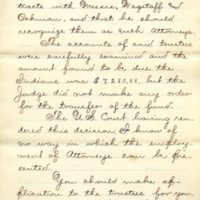 tracts with Messrs, Wagstaff and
Oakman, and that he should
recognize them as such Attorneys.
The accounts of said trustee
were carefully examined and the
amount found to be due the
Indians was $7,250.88, but the
Judge did not make any order
for the transfer of the fund.
The U.S. Court having ren-
dered this decision, I know of
no way in which the employ-
ment of Attorneys can be pre-
vented.
You should make ap-
plication to the trustee for you